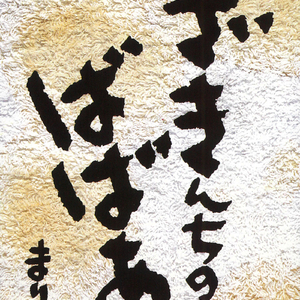 ずきんちの
ばばあ
まり